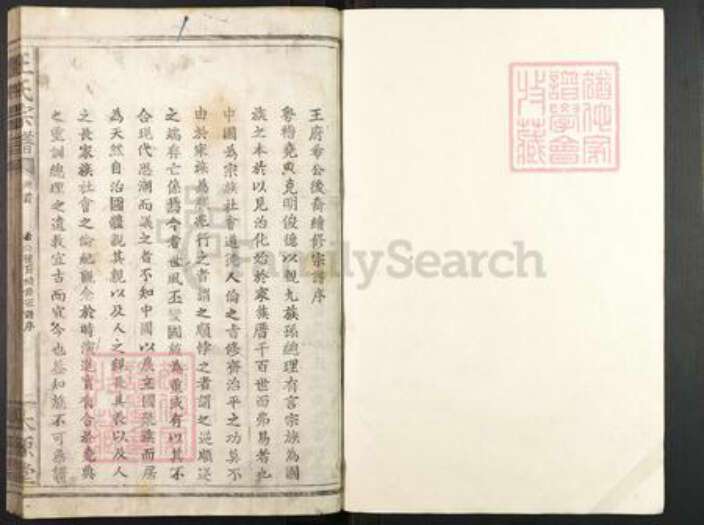 王府君公後裔續修宗譜序
魯稽堯典克明俊德以親九族孫總理有言宗族為國
族之本於以見治化始於家族曆千百世而弗易者也
中國為宗族社會道德人倫之者修齊治平之功莫不
由於宗族為 行之者謂之順悖之者謂之逆順逆
之端存亡係焉今者世風丕變國故為重或有以其不
合現代思潮而議之者不知中國以農立國聚族而居
為天然自治團體親其親以及人之親長其長以及人
之長家族社會之倫紀觀念於時演進實有合於堯典
之重訓總理之遺教宜古而宜今也蓋知族不可無譜
王氏宗譜
卷首
後裔續修宗譜序
猶他家譜學會珍藏
FamilySearch